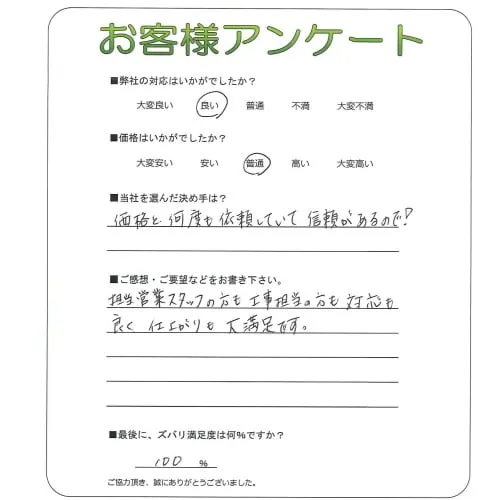 お客様アンケート
■弊社の対応はいかがでしたか？
大変良い 良い 普通 不満 大変不満
■価格はいかがでしたか？
大変安い 安い 普通 高い 大変高い
■当社を選んだ決め手は？
価格と何度も依頼していて信頼があるので!
■ご感想・ご要望などをお書き下さい。
担当営業スタッフの方も工事担当の方も対応も
良く仕上がりも大満足です。
■最後に、ズバリ満足度は何%ですか？
100 %
ご協力頂き、誠にありがとうございました。